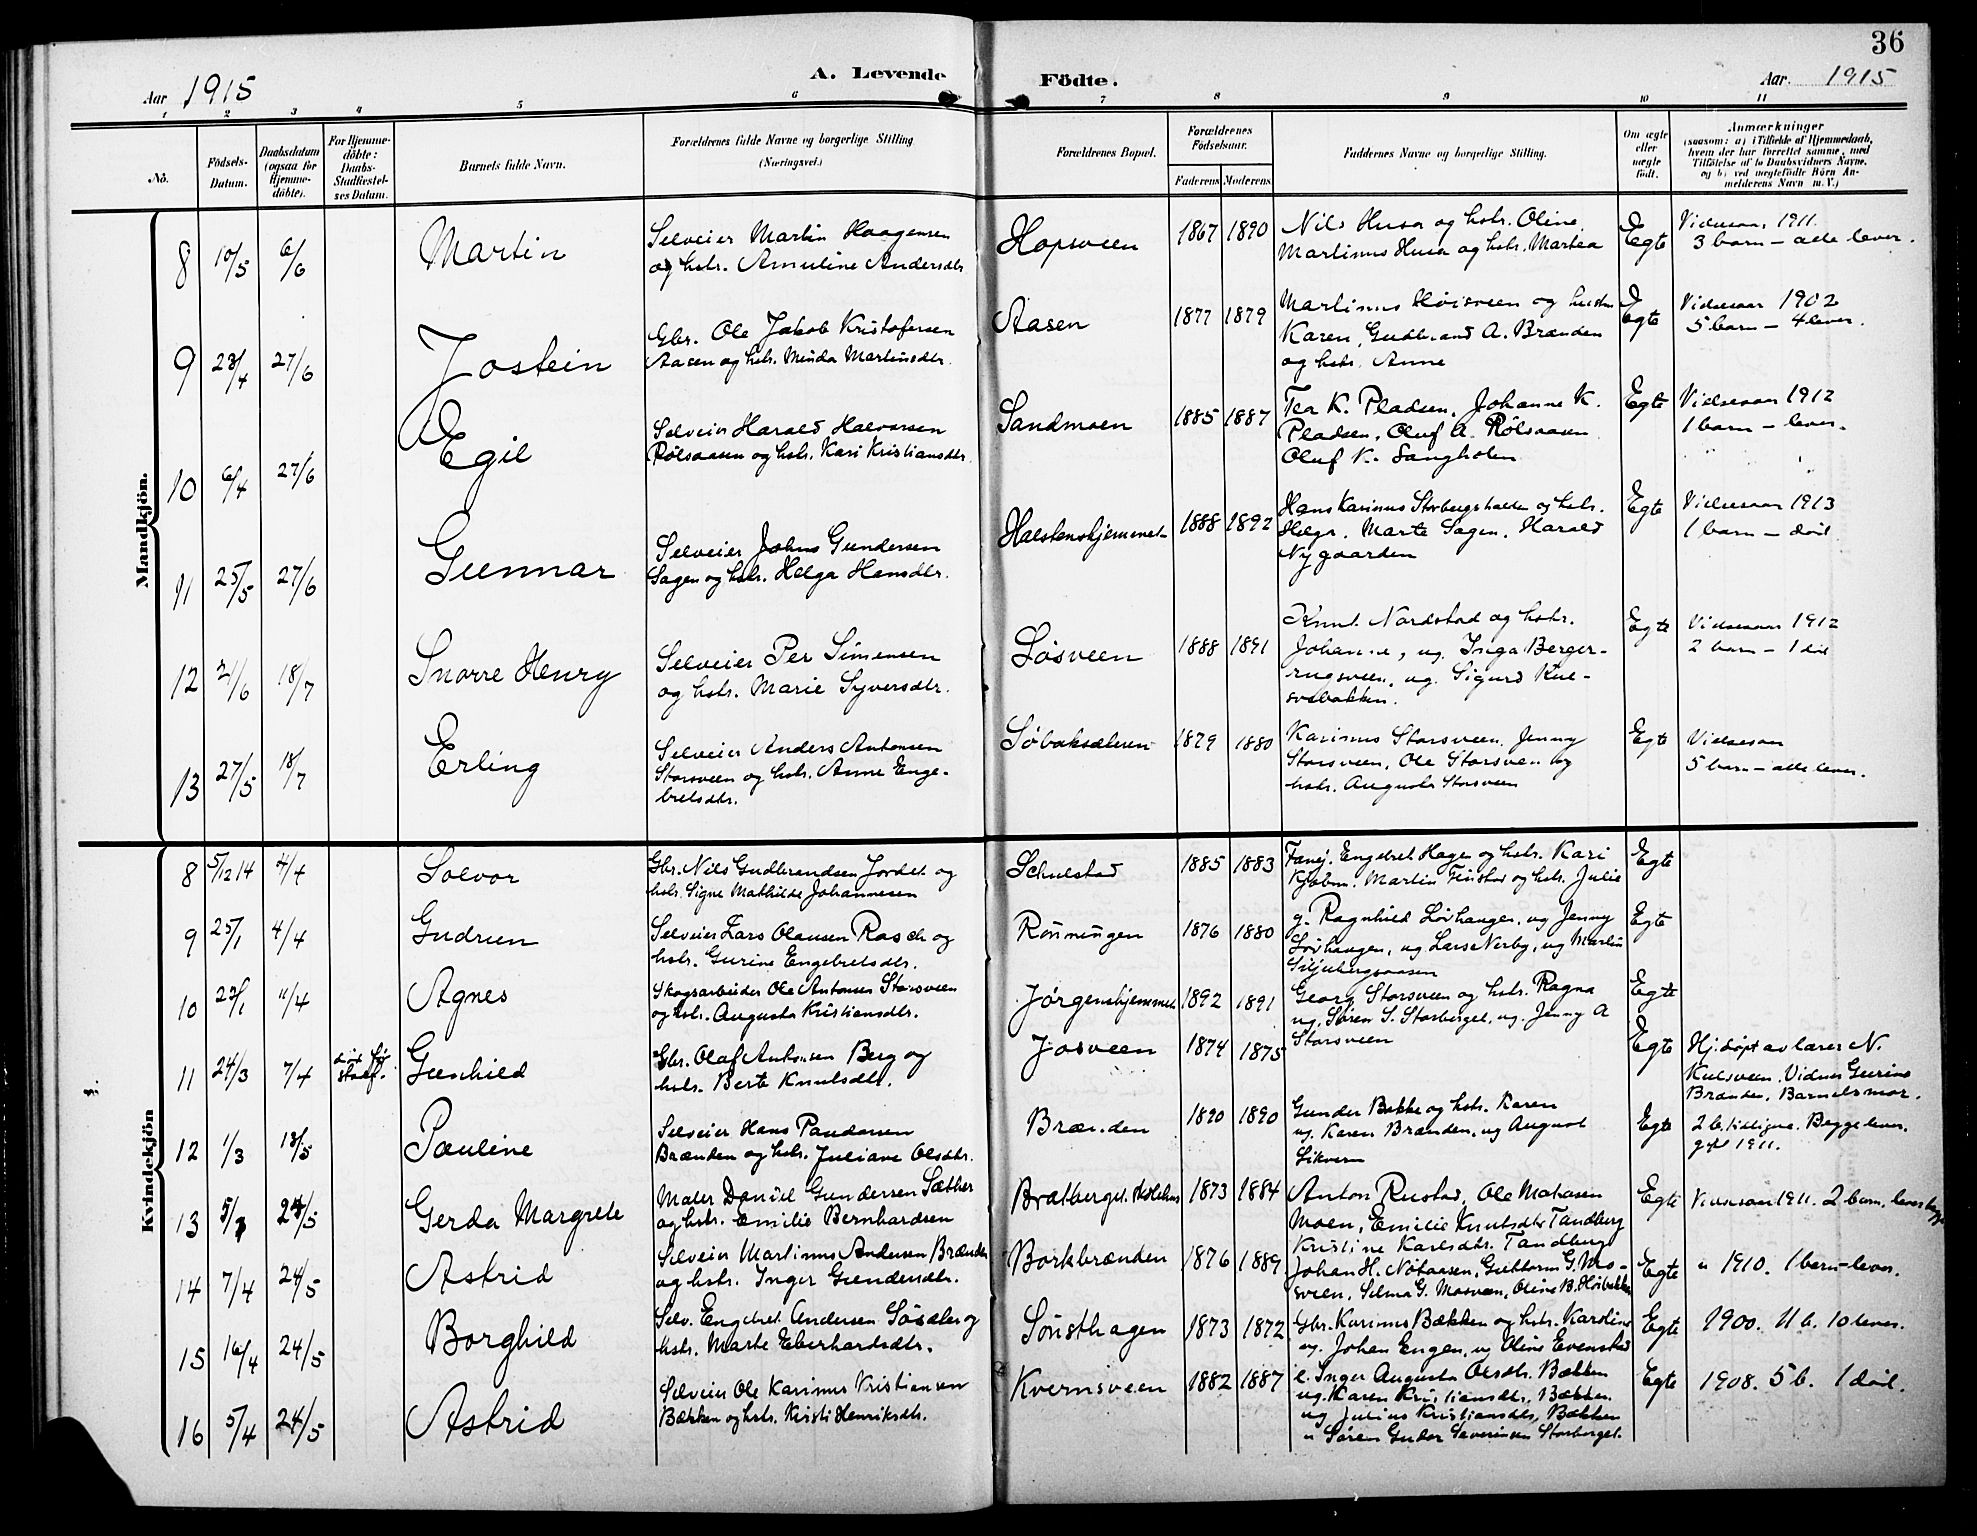 36
A. Levende Födte.
Aar 1915
Aar. 1915
1 2 3 4 5 6 7 8 9 10 11
No.
Födsels-Datum.
Daabsdatum (ogsaa for Hjemme-döbte).
For Hjemme-döbte: Daabs-Stadfæstel-ses Datum.
Barnets fulde Navn.
Forældrenes fulde Navne og borgerlige Stilling (Næringsvei.)
Forældrenes Bopæl.
Forældrenes Födselsaar.
Faderens Moderens
Faddernes Navne og borgerlige Stilling.
Om ægte eller uægte födt.
Anmærkninger
(saasom: a) i Tilfælde af Hjemmedaab, hvem der har forrettet samme, med Tilföielse af to Daabsvidners Navne, og b) ved uægtefödte Börn An-melderens Navn m. V.)
Mandkjön.
8 10/5 6/6 Martin
Selveier Martin Haagensen
og hstr. Anuline Andersdtr.
Hopsveen 1867 1890
Nils Husa og hstr. Oline
Martinus Husa og hstr. Martea
Egte
Vielsesaar 1911.
3 barn – alle lever.
9 28/4 27/6 Jostein
Gbr. Ole Jakob Kristofersen
Aasen og hstr. Minda Martinsdtr.
Aasen 1877 1879
Martinus Høisveen og hustru
Karen, Gudbrand A. Brænden
og hstr. Anne
Egte
Vielsesaar 1902
5 barn – 4 lever.
10 6/4 27/6 Egil
Selveier Harald Halvorsen
Rølsaasen og hstr. Kari Kristiansdtr.
Sandmoen 1885 1887
Tea K. Pladsen, Johanne K.
Pladsen, Oluf A. Rølsaasen
Oluf K. Sangholen
Egte
Vielsesaar 1912
1 barn – lever.
11 25/5 27/6 Gunnar
Selveier Johns Gundersen
Sagen og hstr. Helga Hansdtr.
Halstenshjemmet 1888 1892
Hans Karinus Storbergshalden og hstr.
Helga. Marte Sagen. Harald
Nygaarden
Egte
Vielsesaar 1913
1 barn – død
12 21/6 18/7 Snorre Henry
Selveier Per Simensen
og hstr. Marie Syversdtr.
Løsveen 1888 1891
Knut Nordstad og hstr.
Johanne, ug. Inga Berger-
rugsveen, ug. Sigurd Kul-
svebakken.
Egte
Vielsesaar 1912
2 barn – 1 død
13 27/5 18/7 Erling
Selveier Anders Antonsen
Storsveen og hstr. Anne Enge-
bretsdtr.
Søbaksæteren 1879 1880
Karinus Storsveen, Jenny
Storsveen, Ole Storsveen og
hstr. Augusta Storsveen
Egte
Vielsesaar
5 barn – alle lever.
Kvindekjön
8 5/12 14 4/4 Solvor
Gbr. Nils Gudbrandsen Jordet og
hstr. Signe Mathilde Johannesen
Schulstad 1885 1883
Engebret Hagen og hstr. Kari
Martin Finstad og hstr. Julie
Egte
9 25/1 4/4 Gudrun
Selveier Lars Olausen Rasch og
hstr. Gurine Engebretsdtr.
Rønningen 1876 1880
g. Ragnhild Løvhaugen, ug Jenny
Løvhaugen, ug Lars Nerby, ug Martin
Siljubergsaasen
Egte
10 23/1 11/4 Agnes
Skogsarbeider Ole Antonsen Storsveen
og hstr. Augusta Kristiansdtr.
Jørgenshjemmet 1892 1891
Georg Storsveen og hstr. Ragna
ug. Søren S. Storberget, ug. Jenny A
Storsveen
Egte
11 24/3 7/4 død før stadf. Gunhild
Gbr. Olaf Antonsen Berg og
hstr. Berte Knutsdtr.
Josveen 1874 1875
Egte
Hj.døpt av lærer N.
Kulsveen. Vidner Gurine
Brænden, Barnets mor.
12 1/3 13/5 Pauline
Selveier Hans Paudersen
Brænden og hstr. Juliane Olsdtr.
Brænden 1890 1890
Gunder Bakke og hstr. Karen
ug. Karen Brænden, ug August
Sikveen
Egte
2 b. tidligere. Begge lever.
gft 1911.
13 24/5 Gerda Margrete
Maler Daniel Gundersen Sæther
og hstr. Emilie Bernhardsen
Bratberget 1873 1884
Anton Rustad, Ole Mathisen
Moen, Emilie Knutsdtr Tandberg
Kristine Karlsdtr. Tandberg
Egte
Vielsesaar 1911. 2 barn, lever begge
14 7/4 24/5 Astrid
Selveier Martinus Andersen Brænden
og hstr. Inger Gundersdtr.
Borkbrænden 1876 1889
Johan H. Nøtaasen, Guttorm G. Mo-
sveen, Selma G. Mosveen, Oline B. Høibakken
Egte
" 1910. 1 barn – lever.
15 16/4 24/5 Borghild
Selv. Engebret Andersen Sösdal og
hstr. Marte Eberhardsdtr.
Sønsthagen 1873 1872
Gbr. Karinus Bækken og hstr. Karoline
ug. Johan Engen, ug Oline Evenstad
Egte
1900. 11 b. 10 lever.
16 5/4 24/5 Astrid
Selveier Ole Karinus Kristiansen
Bækken og hstr. Kristi Henriksdtr.
Kvernsveen 1882 1887
e. Inger Augusta Olsdtr. Bækken
ug. Karen Kristiansdtr. Bækken
ug Julius Kristiansdtr, Bækken
" Søren Gudor Severinsen Storberget.
Egte
1908. 5 b. 1 død.